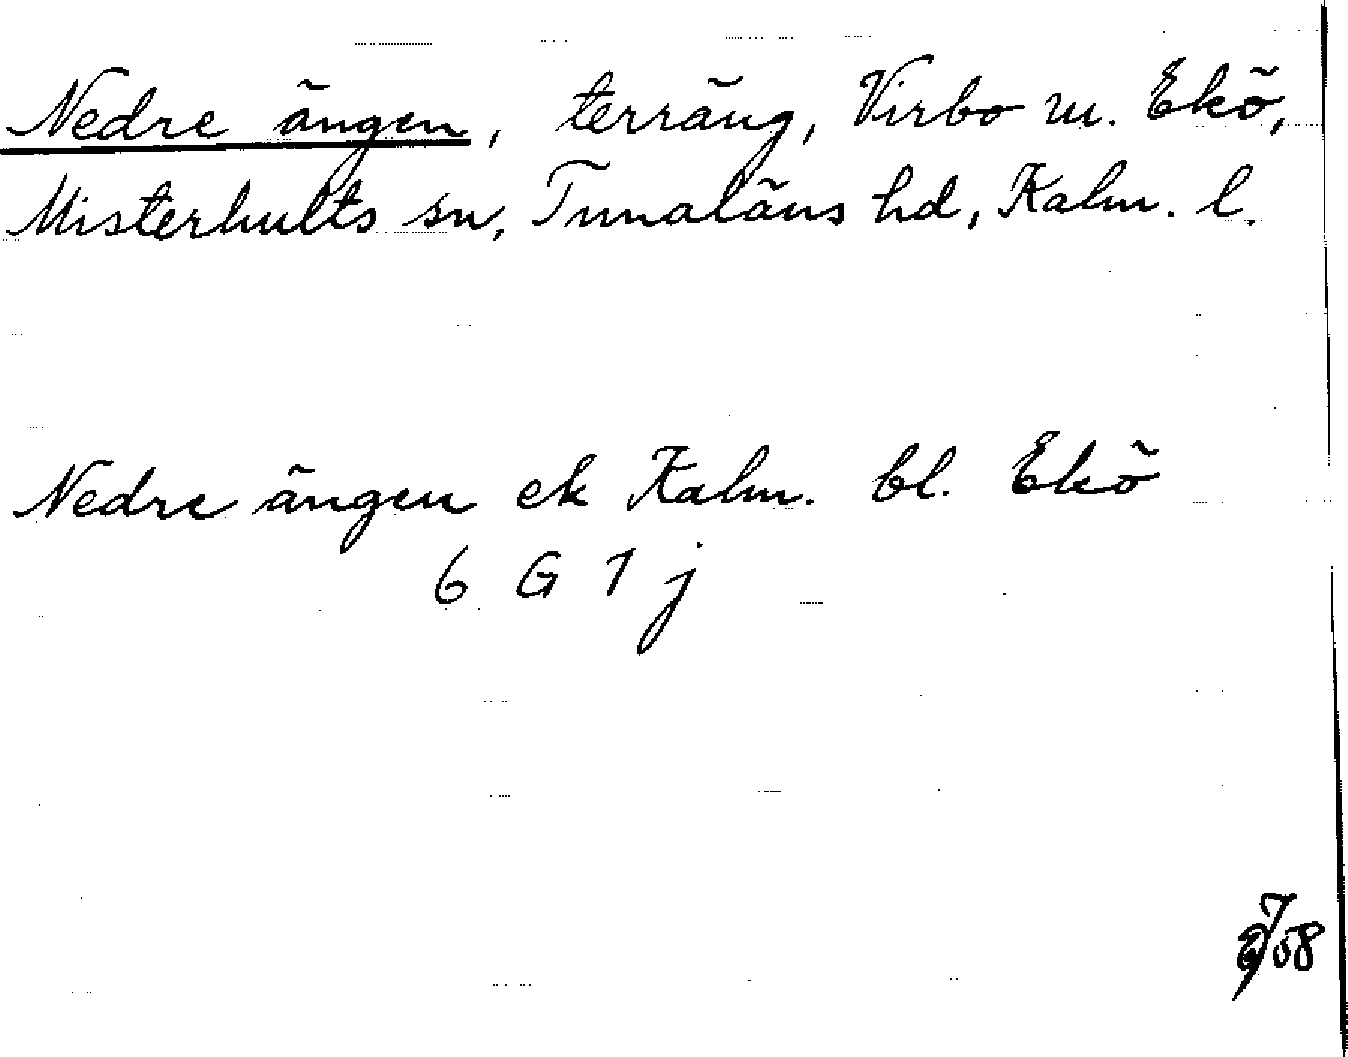 Nedre ängen, terräng, Virbo m. Ekö,
Misterhults sn, Tunaläns hd, Kalm. l.
Nedre ängen ek Kalm. bl. Ekö
6 G 7 j
58